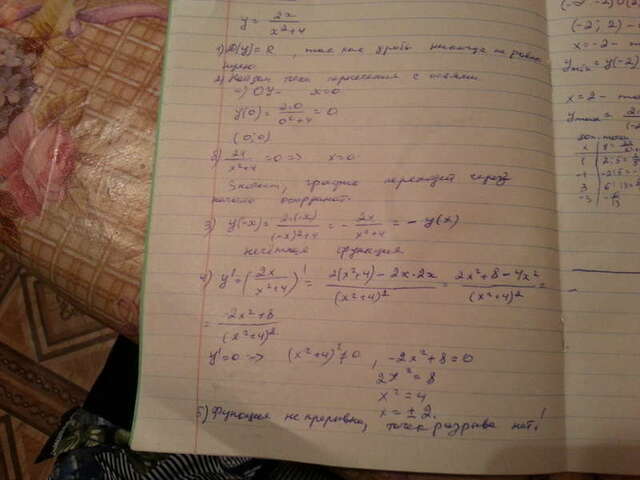 y = 2x / x²+4
1) D(y) = R, так как дробь никогда не равна
нулю.
2) Найдем точки пересечения с осями
а) OY- x=0
y(0) = 2·0 / 0²+4 = 0
(0;0)
б) 2x / x²+4 = 0 => x=0
Значит, график переходит через
начало координат.
3) y(-x) = 2·(-x) / (-x)²+4 = - 2x / x²+4 = - y(x)
нечётная функция
4) y' = (2x / x²+4)' = 2(x²+4) - 2x·2x / (x²+4)² = 2x²+8-4x² / (x²+4)² =
= -2x²+8 / (x²+4)²
y'=0 => (x²+4)²≠0, -2x²+8=0
2x²=8
x²=4
x=±2.
5) Функция непрерывна, точек разрыва нет!
(-2; 2) -
x=-2 - 
y min = y(-2)
x=2 -
y max =
доп. точки
x
1
-1
3
-3